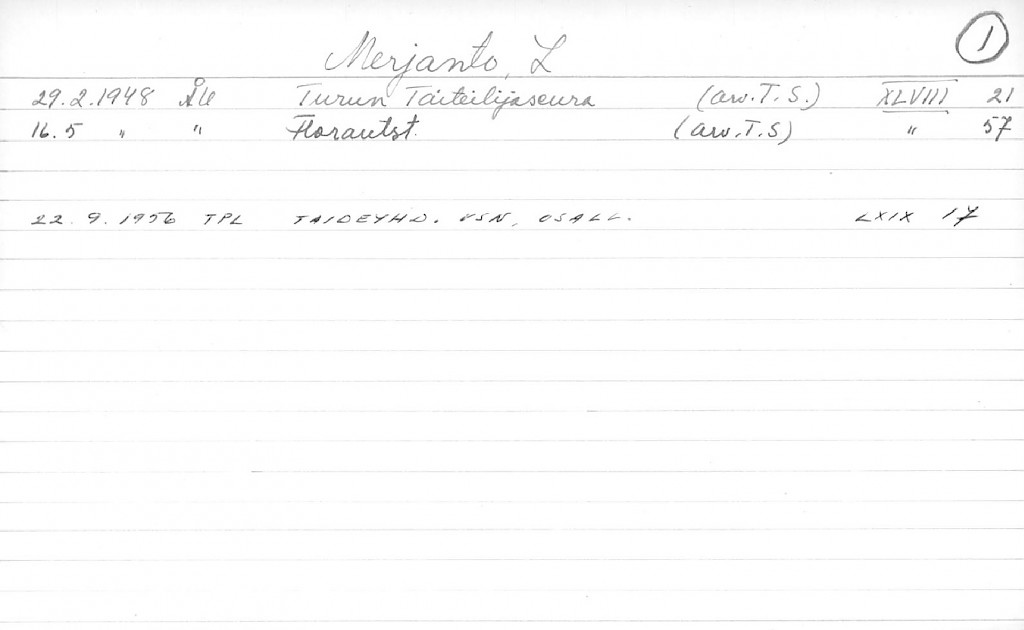 1
Merjanto, L
29.2.1948 ÅU Turun Taiteilijaseura (arv. T.S.) XLVIII 21
16.5 " " Florautst. (arv. T.S) " 57
22. 9. 1956 TPL TAIDEYHD. VSN, OSALL. LXIX 17